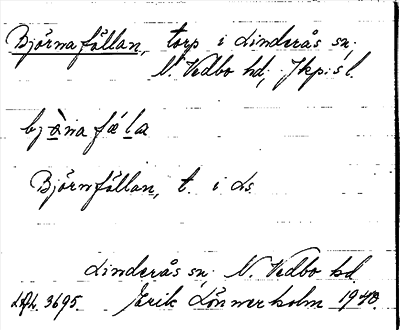 Björnafällan, torp i Linderås sn,
N. Vedbo hd, Jkp:s l.
bjὰna fǽla
Björnfällan, t. i Ls.
Linderås sn, N. Vedbo hd.
3695. Erik Lönnerholm 1940.